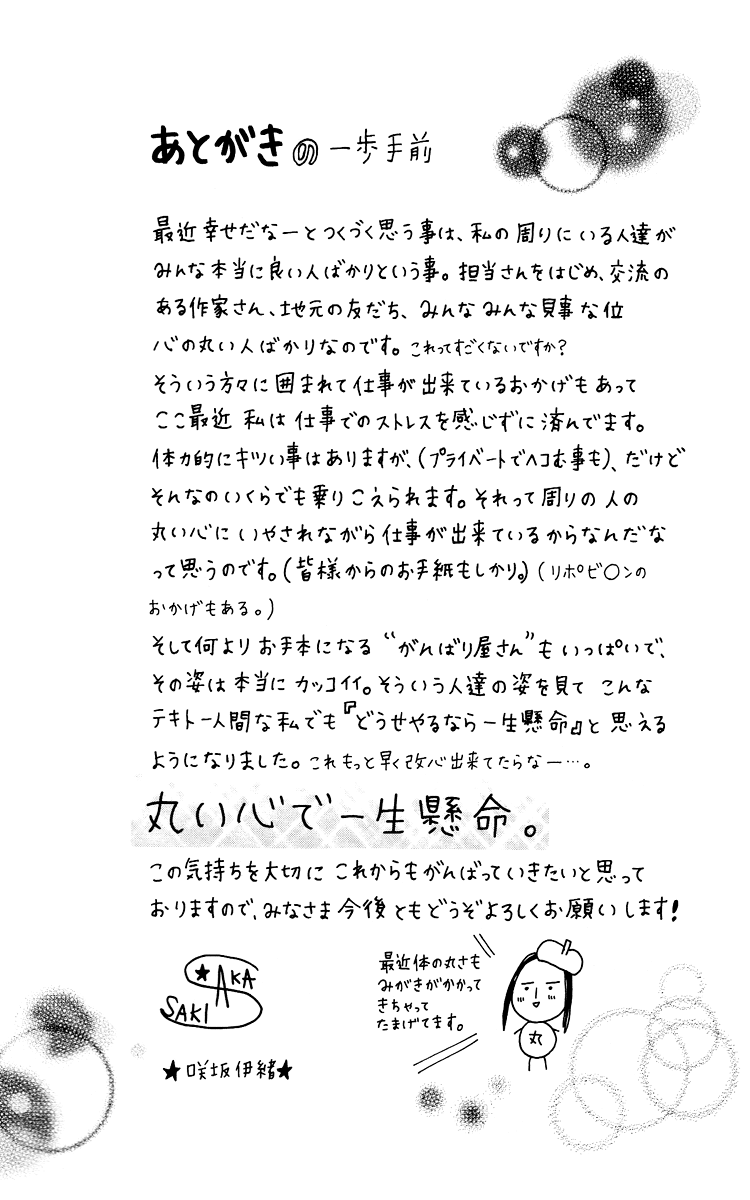 あとがきの一歩手前
最近幸せだなーとつくづく思う事は、私の周りにいる人達が
みんな本当に良い人ばかりという事。担当さんをはじめ、交流の
ある作家さん、地元の友だち、みんなみんな見事な位
心の丸い人ばかりなのです。これってすごくないですか?
そういう方々に囲まれて仕事が出来ているおかげもあって
ここ最近 私は仕事でのストレスを感じずに済んでます。
体力的にキツい事はありますが、(プライベートでヘコむ事も)、だけど
そんなのいくらでも乗りこえられます。それって周りの人の
丸い心にいやされながら仕事が出来ているからなんだな
って思うのです。(皆様からのお手紙もしかり。)(リポビ〇ンの
おかげもある。)
そして何よりお手本になる“がんばり屋さん”もいっぱいで、
その姿は本当にカッコイイ。そういう人達の姿を見て こんな
テキトー人間な私でも『どうせやるなら一生懸命』と思える
ようになりました。これもっと早く改心出来てたらなー…。
丸い心で一生懸命。
この気持ちを大切に これからもがんばっていきたいと思って
おりますので、みなさま今後ともどうぞよろしくお願いします!
★AKA
SAKI
★咲坂伊緒★
最近体の丸さも
みがきがかかって
きちゃって
たまげてます。
丸